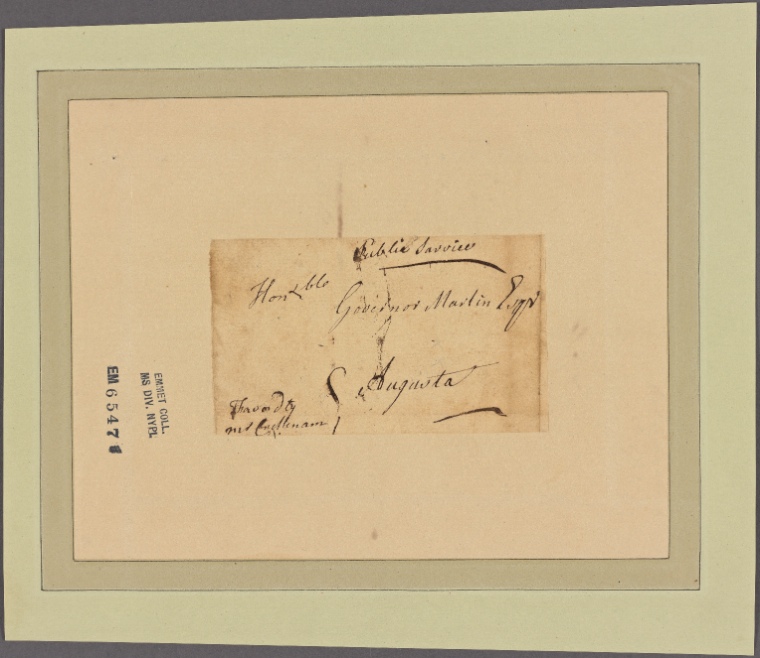 Public Service
Hon.ble
Governor Martin Esqr
Augusta
Favord by
mr
EMMET COLL.
MS DIV. NYPL
EM 6547